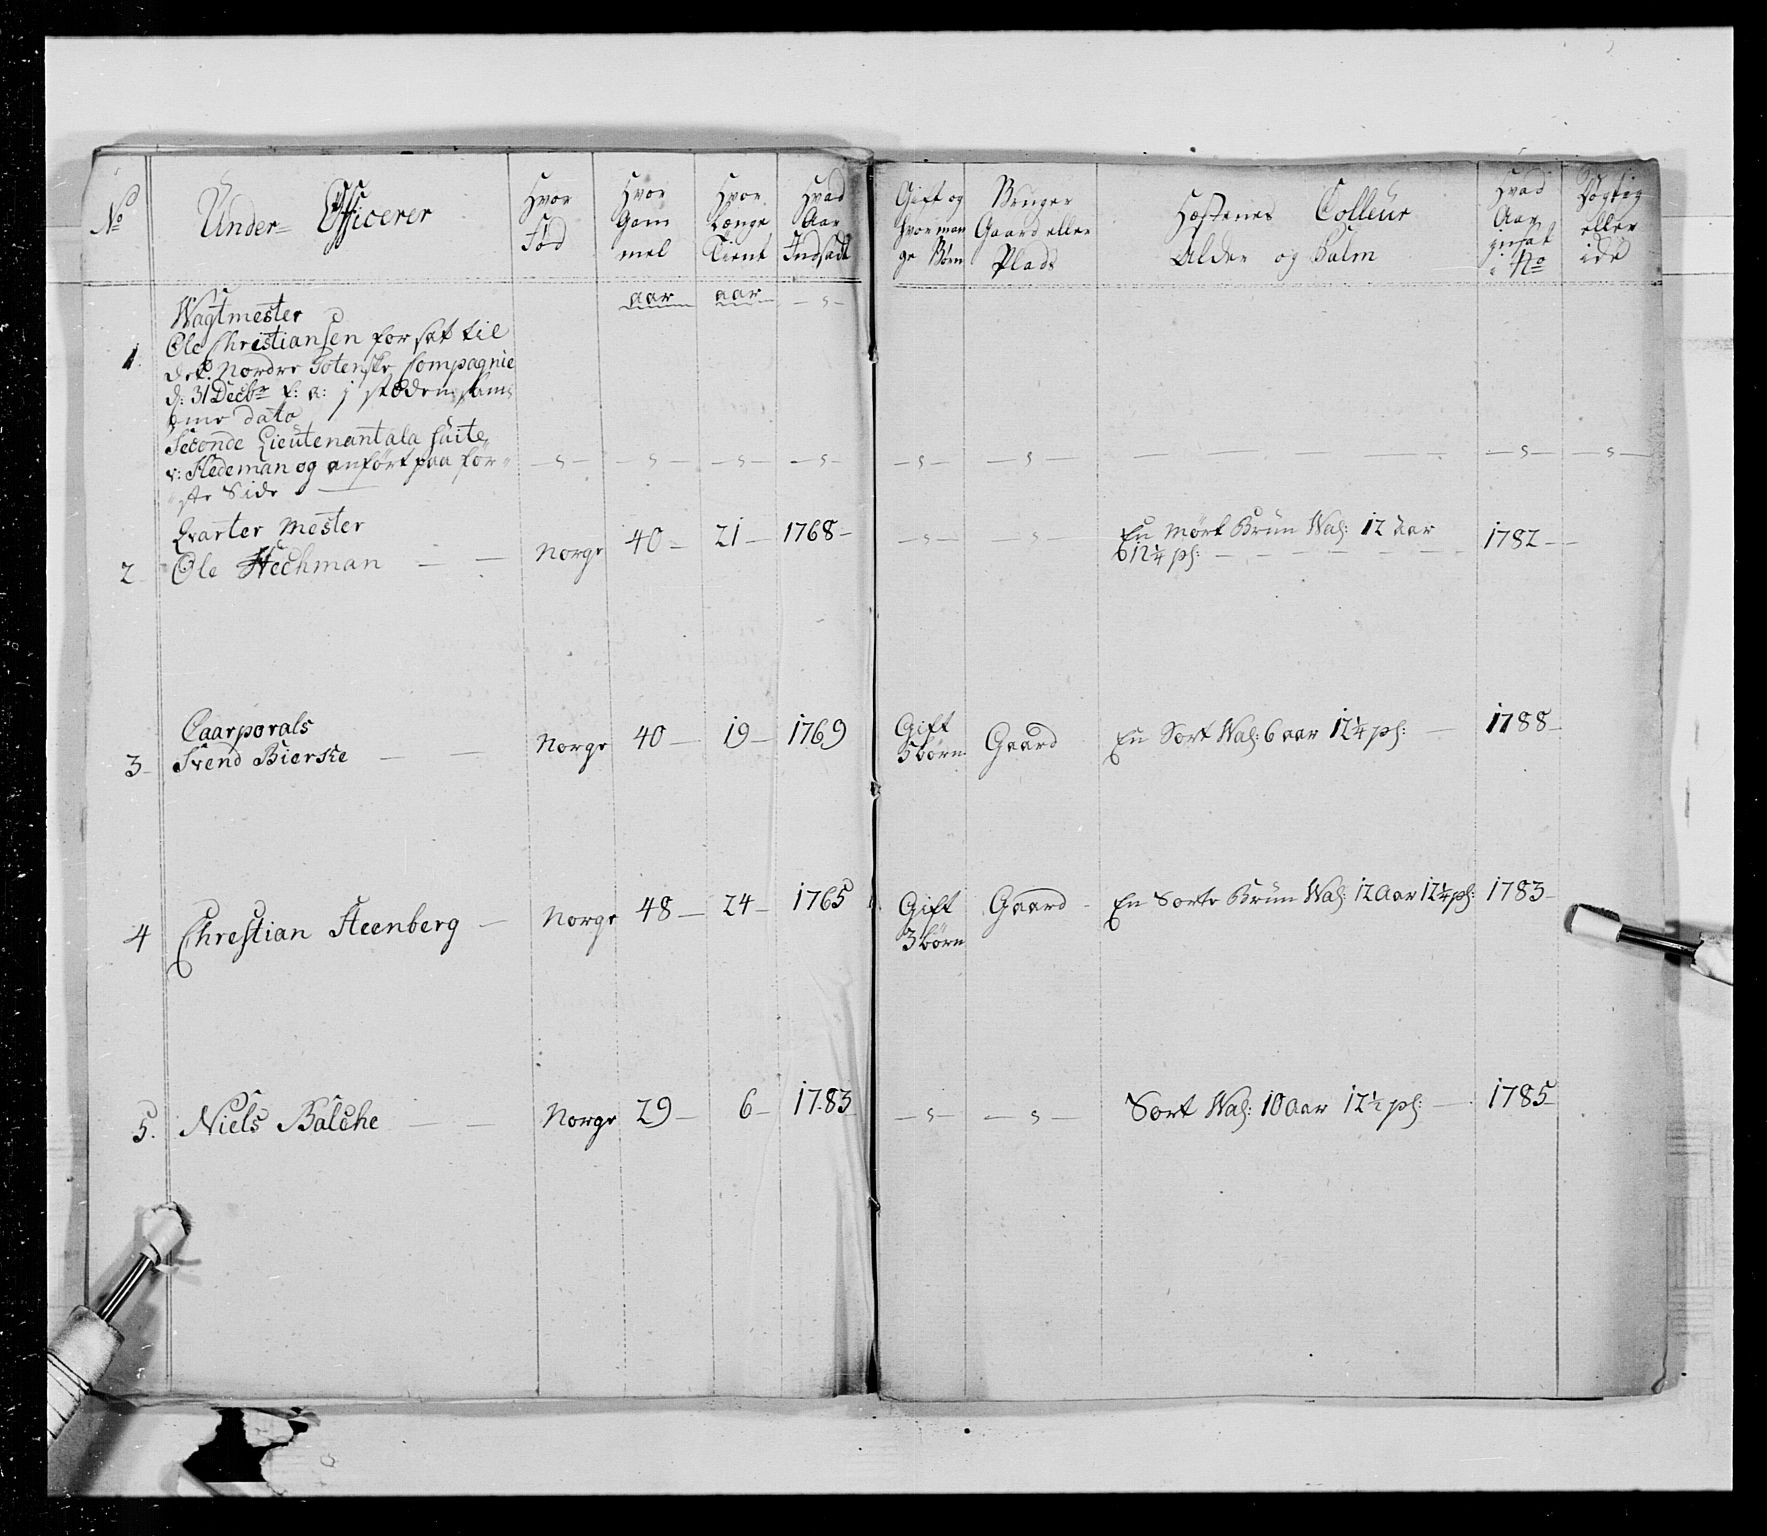 No
Under- Officerer
Hvor
Fød
Hvor
Gam
mel
Hvor
Længe
Tient
Hvad
Aar
Indsadt
Gift og
hvor man
ge Børn
Bruger
Gaard eller
Plads
Hæstenes Colleur
Alder og Palm
Hvad
Aar
insat
i No
Dygtig
eller
idø
aar aar -s-
Wagtmester
1. Ole Christiansen forsat til
det Nordre Totenske Compagnie
d: 31 Decbr f: a: j stæden sam¸
ōme dato
Seconde Lieutenant ala Suite
v: Hedeman og anført paa før¨
¨ste Side — -s- -s- -s- -s- -s- -s- — — — — — -s- -s-
Qvarter Mester
2 Ole Hechman — — Norge 40- 21- 1768- -s- -s- En Mørk Brun Wal: 12 Aar
12¼ pl: — — — — — 1782-
Caarporals
3- Svend Bierke — — Norge 40- 19- 1769 Gift
5 børn Gaard En Sort Wal: 6 aar 12¼ pl: — 1788-
4 Christian Steenberg — Norge 48- 24- 1765 Gift
3 børn Gaard - En Sorte Brun Wal: 12 Aar 12¼ pl: 1783-
5. Niels Balche — — Norge 29- 6- 1783 -s- -s- Sort Wal: 10 Aar 12½ pl: — 1785-